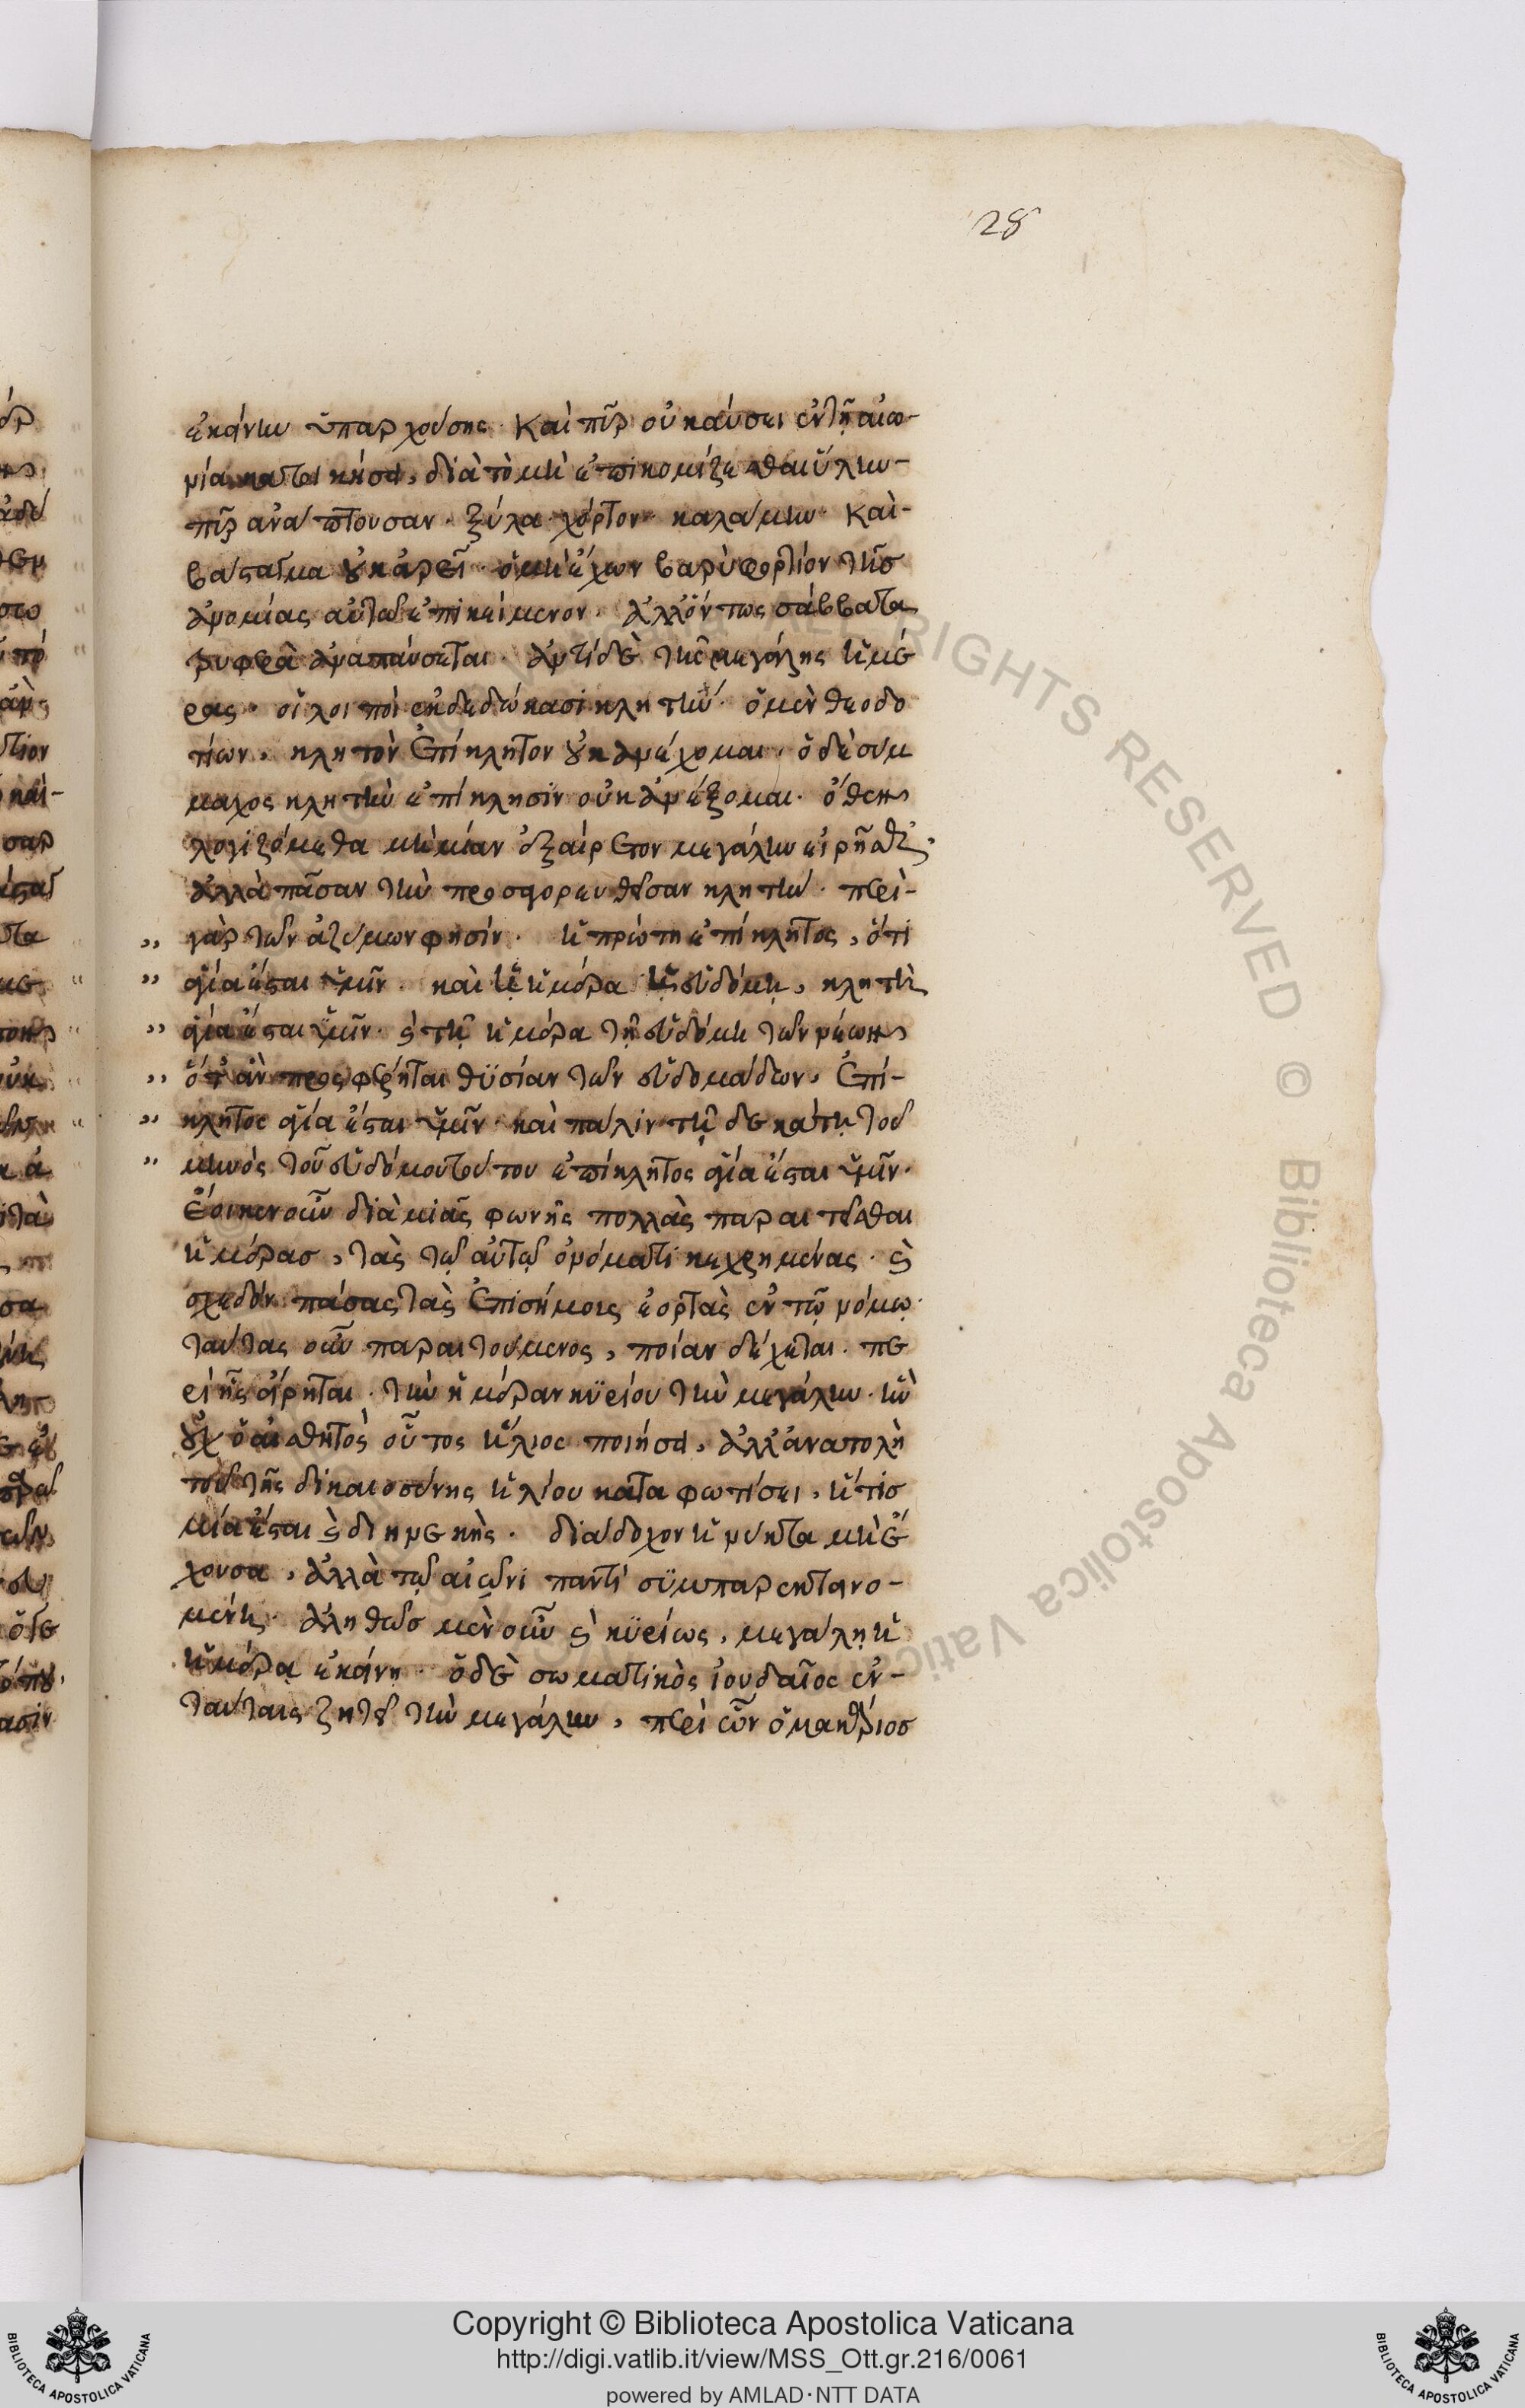 28
ἐκείνην ὑπαρχούσης. Καὶ πῦρ οὐ καύσει ἐν τῇ αἰω-
νία κατοικήσει, διὰ τὸ μὴ ἐπικομίζεσθαι ὕλην-
πῦρ ἀνάπτουσαν. ξύλα. χόρτον. καλάμην. Καὶ-
βάσταγμα οὐκ ἀρεῖ. ὁ μὴ ἔχων βαρὺ φορτίον τῆσ
ἀνομίας αὐτῶ ἐπικείμενον. ἀλλ' ὄντως σάββατα
τρυφερὰ ἀναπαύσεται. ἀντὶ δὲ τῆς μεγάλης ἡμέ
ρας. οἱ λοιποὶ ἐκδεδώκασι κλητήν. ὁ μὲν θεοδο
τίων, κλητὸν ἐπίκλητον οὐκ ἀνέχομαι. ὁ δὲ σύμ
μαχος κλητὴν ἐπίκλησιν οὐκ ἀνέξομαι. ὅθεν
λογιζόμεθα μὴ μίαν ἐξαίρετον μεγάλην εἰρῆσθαι.
ἀλλὰ πᾶσαν τὴν προσαγορευθεῖσαν κλητήν. περὶ-
γὰρ τῶν ἀζύμων φησίν. ἡ πρώτη ἐπίκλητος, ὅτι
ἁγία ἔσται ὑμῖν. καὶ τῇ ἡμέρα τῇ ἑβδόμη, κλητὴ
ἁγία ἔσται ὑμῖν. καὶ τῇ ἡμέρα τῇ ἑβδόμη τῶν νέων
ὅταν προσφέρηται θϋσίαν τῶν ἑβδομάδων, ἐπί-
κλητος ἁγία ἔσται ὑμῖν. καὶ πάλιν τῇ δεκάτη τοῦ
μηνὸς τοῦ ἑβδόμου τούτου ἐπίκλητος ἁγία ἔσται ὑμῖν.
ἔοικεν οὖν διὰ μιᾶς φωνῆς πολλὰς παραιτεῖσθαι
ἡμέρασ, τὰς τῶ αὐτῶ ὀνόματι κεχρημένας. καὶ
σχεδὸν πάσας τὰς ἐπισήμοις ἑορτὰς ἐν τῷ νόμῳ.
ταύτας οὖν παραιτούμενος, ποίαν δέχεται. πε
ρὶ ἧς εἴρηται. τὴν ἡμέραν κϋρίου τὴν μεγάλην. ἣν
οὐχ ὁ αἰσθητὸς οὗτος ἥλιος ποιήσει, ἀλλ' ἀνατολὴ
τοῦ τῆς δικαιοσύνης ἡλίου καταφωτίσει, ἥτισ
μία ἔσται καὶ διηνεκὴς. διάδοχον ἡ νύκτα μὴ ἔ
χουσα, ἀλλὰ τῷ αἰῶνι παντὶ σϋμπαρεκτεινο-
μένη. ἀληθῶσ μὲν οὖν καὶ κϋρίως, μεγάλη ἡ
ἡμέρα ἐκείνη. ὁ δὲ σωματικὸς ἰουδαῖος ἐν-
ταύταις ζητεῖ τὴν μεγάλην, περὶ ὧν ὁ μακάριοσ
Copyright © Biblioteca Apostolica Vaticana
http://digi.vatlib.it/view/MSS_Ott.gr.216/0061
powered by AMLAD·NTT DATA